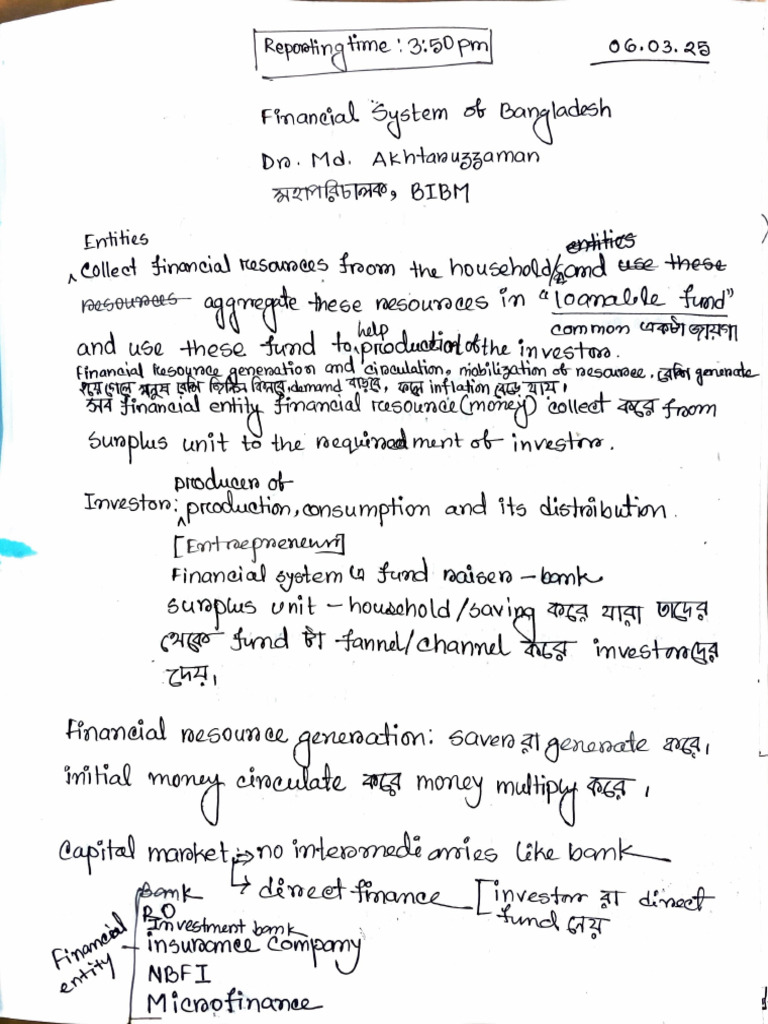 Reporting time : 3:50 pm
06.03.25
Financial System of Bangladesh
Dr. Md. Akhtaruzzaman
মহাপরিচালক, BIBM
Entities
entities
^ Collect financial resources from the household/s and use these
resources aggregate these resources in "loanable fund"
common একটা জায়গা
help
and use these fund to production of the investor.
Financial resource generation and circulation, mobilization of resource. বেশি generate
হয়ে গেলে মানুষ বেশি জিনিস কিনবে, demand বাড়বে, ফলে inflation বেড়ে যায়।
সব financial entity financial resource (money) collect করে from
surplus unit to the requiredment of investor.
producer of
Investor: ^ production, consumption and its distribution.
[Entrepreneur]
Financial system এ fund raiser – bank
surplus unit – household/saving করে যারা তাদের
থেকে fund টা fannel/channel করে investorদের
দেয়।
Financial resource generation: saver রা generate করে।
initial money circulate করে money multiply করে।
Capital market → no intermediaries like bank
↳ direct finance [investor রা direct
fund নেয়
Financial entity
Bank
Investment bank
insurance company
NBFI
Microfinance